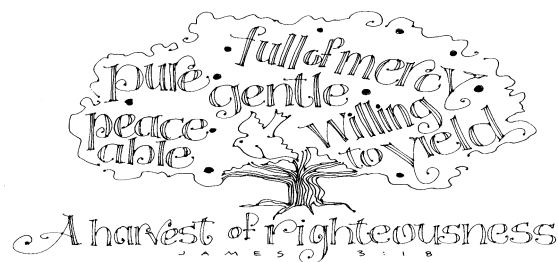 pure
full of mercy
gentle
peace
able
Willing
to yield
A harvest of righteousness
JAMES 3:18